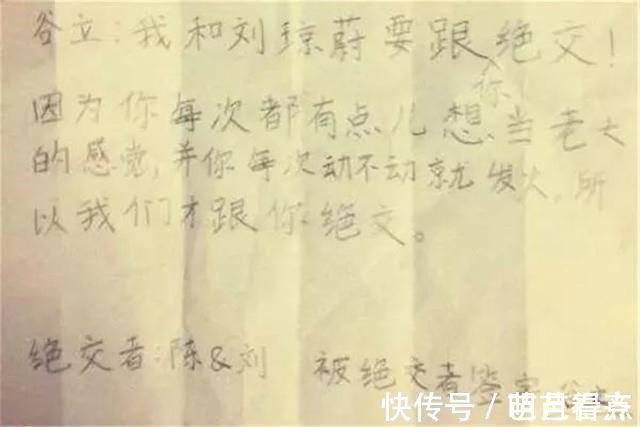 谷立：我和刘琼蔚要跟你绝交！
因为你每次都有点儿想当老大
的感觉，并你每次动不动就发火，所
以我们才跟你绝交。
绝交者：陈&刘 被绝交者签字
快传号／